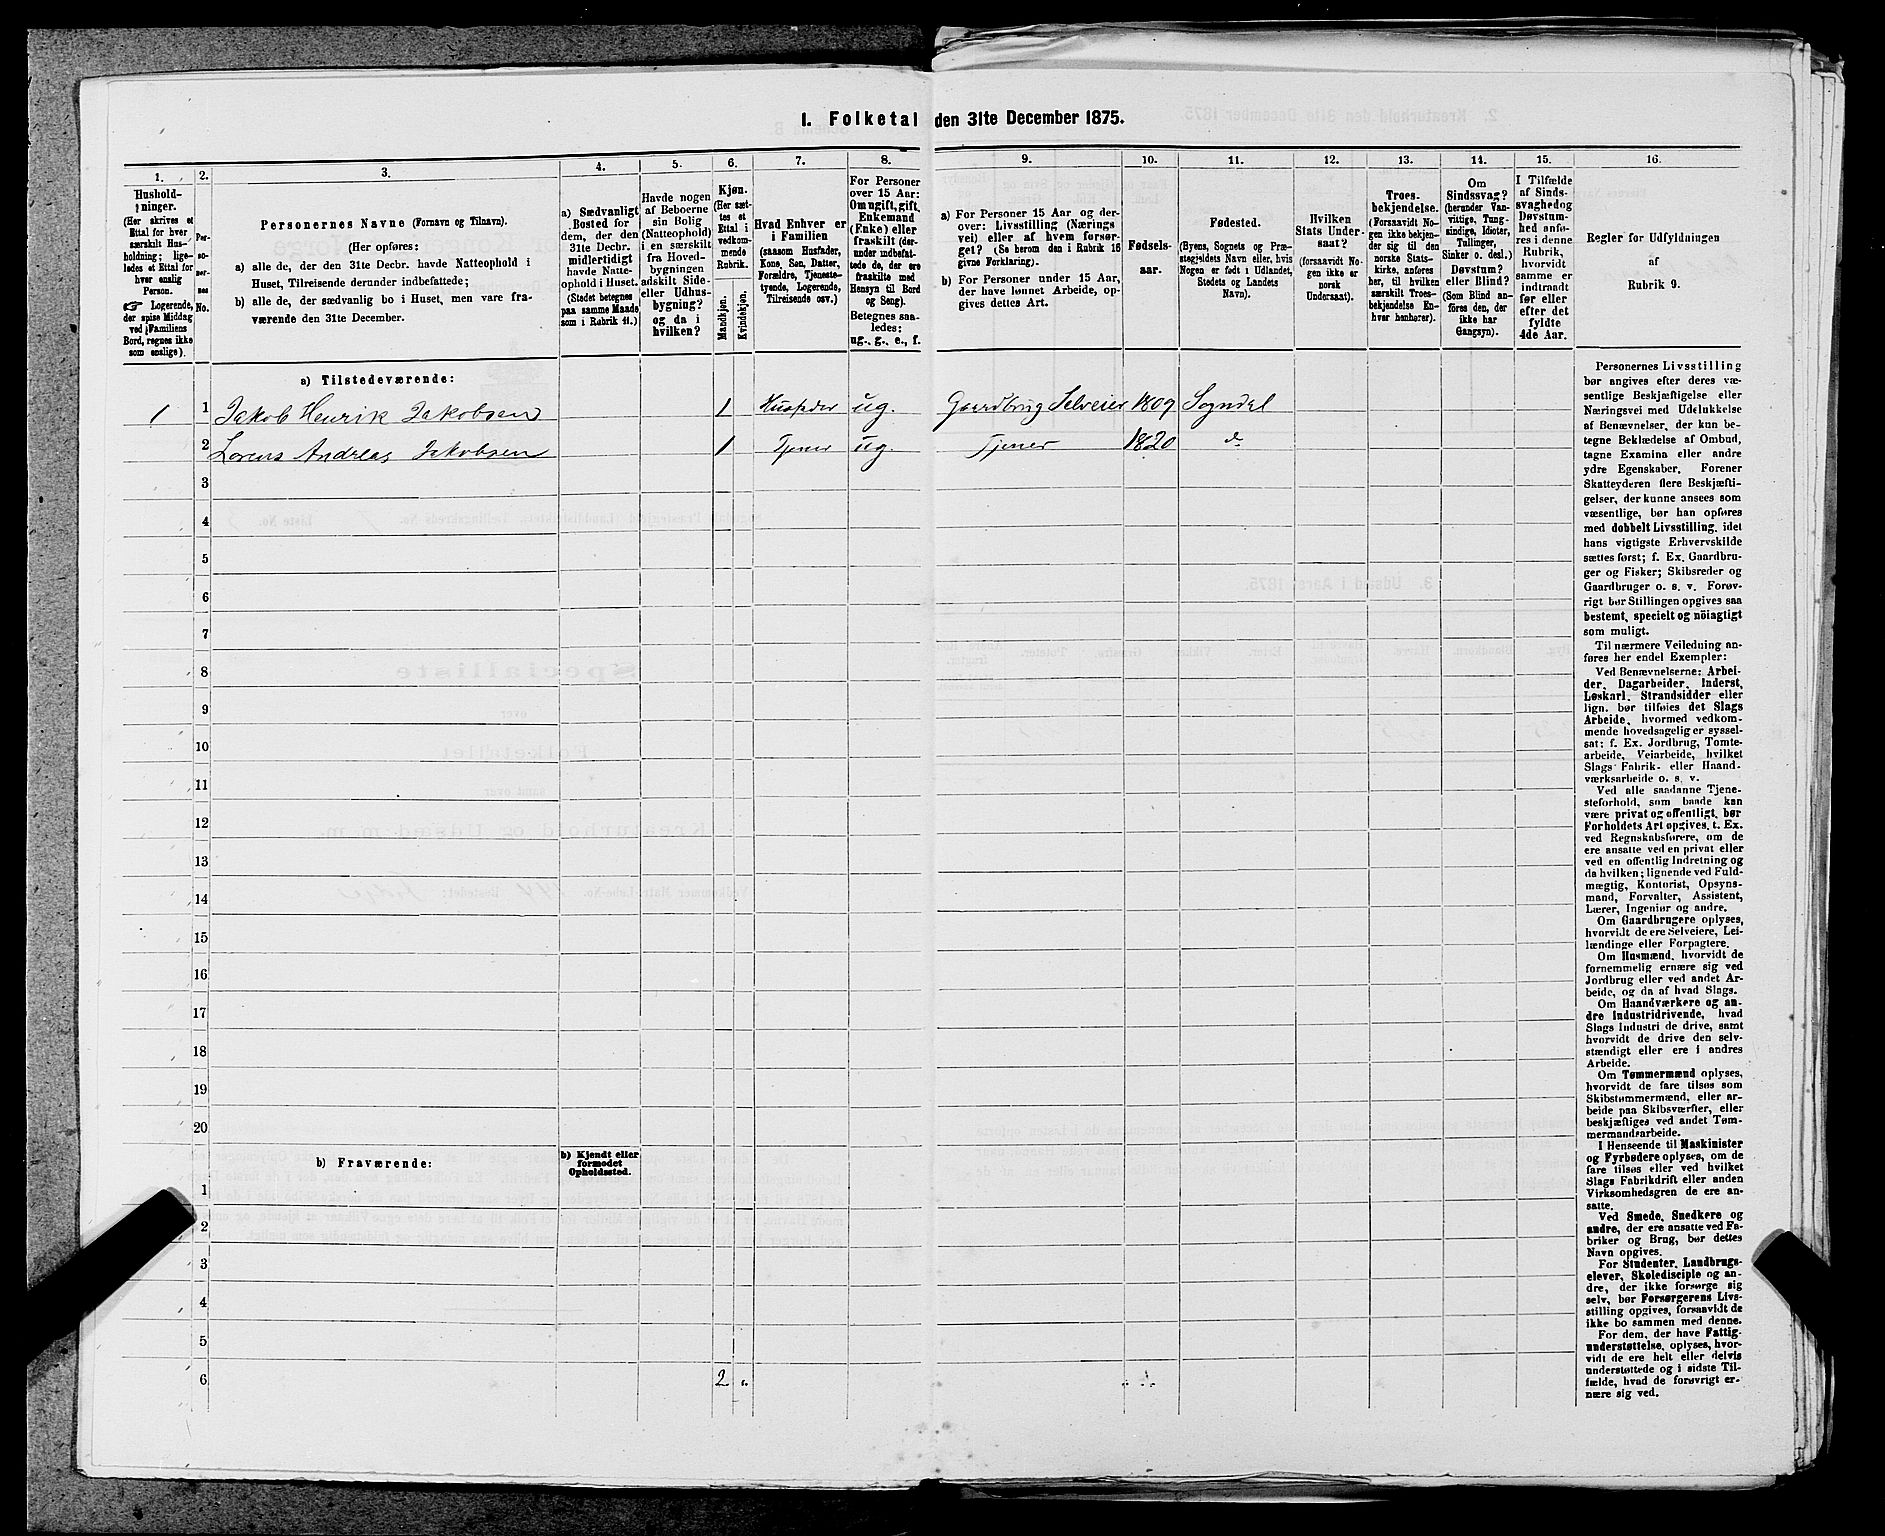 I. Folketal den 31te December 1875.
1.
Hushold-
ninger.
(Her skrives et
Ettal for hver
særskilt Hus-
holdning; lige-
ledes et Ettal for
hver enslig
Person.
☞ Logerende,
der spise Middag
ved Familiens
Bord, regnes ikke
som enslige).
2.
Per-
so-
ner-
nes
No.
3.
Personernes Navne (Fornavn og Tilnavn).
(Her opføres:
a) alle de, der den 31te Decbr. havde Natteophold i
Huset, Tilreisende derunder indbefattede;
b) alle de, der sædvanlig bo i Huset, men vare fra-
værende den 31te December.
4.
a) Sædvanligt
Bosted for
dem, der den
31te Decbr.
midlertidigt
havde Natte-
ophold i Huset.
(Stedet betegnes
paa samme Maade,
som i Rubrik 11.)
5.
Havde nogen
af Beboerne
sin Bolig
(Natteophold)
i en særskilt
fra Hoved-
bygningen
adskilt Side-
eller Udhus-
bygning?
og da i
hvilken?
6.
Kjøn.
(Her sæt-
tes et
Ettal i
vedkom-
mende
Rubrik.
Mandkjøn.
Kvindekjøn.
7.
Hvad Enhver er
i Familien
(saasom Husfader,
Kone, Søn, Datter,
Forældre, Tjeneste-
tyende, Logerende,
Tilreisende osv.)
8.
For Personer
over 15 Aar:
Om ugift, gift,
Enkemand
(Enke) eller
fraskilt (der-
under indbefat-
tede de, der ere
fraskilte med
Hensyn til Bord
og Seng).
Betegnes saa-
ledes:
ug., g., e., f.
9.
a) For Personer 15 Aar og der-
over: Livsstilling (Nærings
vei) eller af hvem forsør-
get? (Se herom den i Rubrik 16
givne Forklaring).
b) For Personer under 15 Aar,
der have lønnet Arbeide, op-
gives dettes Art.
10.
Fødsels-
aar.
11.
Fødested.
(Byens, Sognets og Præ-
stegjeldets Navn eller, hvis
Nogen er født i Udlandet,
Stedets og Landets
Navn).
12.
Hvilken
Stats Under-
saat?
(forsaavidt No-
gen ikke er
norsk
Undersaat).
13.
Troes-
bekjendelse.
(Forsaavidt No-
gen ikke bekjen-
der sig til den
norske Stats-
kirke, anføres
her, til hvilken
særskilt Troes-
bekjendelse En-
hver henhører).
14.
Om
Sindssvag?
(herunder Van-
vittige, Tung-
sindige, Idioter,
Tullinger,
Sinker o. desl.)
Døvstum?
eller Blind?
(Som Blind an-
føres den, der
ikke har
Gangsyn).
15.
I Tilfælde
af Sinds-
svaghed og
Døvstum-
hed anfø-
res i denne
Rubrik,
hvorvidt
samme er
indtraadt
før eller
efter det
fyldte
4de Aar.
16.
Regler for Udfyldningen
af
Rubrik 9.
a) Tilstedeværende:
1 1 Jakob Henrik Jakobsen 1 Husfader ug. Gaardbrug Selveier 1809 Sogndal
2 Lorens Andreas Jakobsen 1 Tjener ug. Tjener 1820 d
3
4
5
6
7
8
9
10
11
12
13
14
15
16
17
18
19
20
b) Fraværende:
b) Kjendt eller
formodet
Opholdssted.
1
2
3
4
5
6 2
Personernes Livsstilling
bør angives efter deres væ-
sentlige Beskjæftigelse eller
Næringsvei med Udelukkelse
af Benævnelser, der kun be-
tegne Beklædelse af Ombud,
tagne Examina eller andre
ydre Egenskaber. Forener
Skatteyderen flere Beskjæfti-
gelser, der kunne ansees som
væsentlige, bør han opføres
med dobbelt Livsstilling, idet
hans vigtigste Erhvervskilde
sættes først; f. Ex. Gaardbru-
ger og Fisker; Skibsreder og
Gaardbruger o. s. v. Forøv-
rigt bør Stillingen opgives saa
bestemt, specielt og nöiagtigt
som muligt.
Til nærmere Veiledning an-
føres her endel Exempler:
Ved Benævnelserne: Arbei-
der, Dagarbeider, Inderst,
Løskarl, Strandsidder eller
lign. bør tilføies det Slags
Arbeide, hvormed vedkom-
mende hovedsagelig er syssel-
sat; f. Ex. Jordbrug, Tomte-
arbeide, Veiarbeide, hvilket
Slags Fabrik- eller Haand-
værksarbeide o. s. v.
Ved alle saadanne Tjene-
steforhold, som baade kan
være privat og offentligt, bør
Forholdets Art opgives, t. Ex.
ved Regnskabsførere, om de
ere ansatte ved en privat eller
ved en offentlig Indretning og
da hvilken; lignende ved Fuld-
mægtig, Kontorist, Opsyns-
mand, Forvalter, Assistent,
Lærer, Ingeniør og andre.
Om Gaardbrugere oplyses,
hvorvidt de ere Selveiere, Lei-
lændinge eller Forpagtere.
Om Husmænd, hvorvidt de
fornemmelig ernære sig ved
Jordbrug eller ved andet Ar-
beide, og da af hvad Slags.
Om Haandværkere og an-
dre Industridrivende, hvad
Slags Industri de drive, samt
hvorvidt de drive den selv-
stændigt eller ere i andres
Arbeide.
Om Tømmermænd oplyses,
hvorvidt de fare tilsøs som
Skibstømmermænd, eller ar-
beide paa Skibsværfter, eller
beskjæftiges ved andet Tøm-
mermandsarbeide.
I Henseende til Maskinister
og Fyrbødere oplyses, om de
fare tilsøs eller ved hvilket
Slags Fabrikdrift eller anden
Virksomhedsgren de ere an-
satte.
Ved Smede, Snedkere og
andre, der ere ansatte ved Fa-
briker og Brug, bør dettes
Navn opgives.
For Studenter, Landbrugs-
elever, Skoledisciple og an-
dre, der ikke forsørge sig
selv, bør Forsørgerens Livs-
stilling opgives, forsaavidt de
ikke bo sammen med denne.
For dem, der have Fattig-
understøttelse, oplyses, hvor-
vidt de ere helt eller delvis
understøttede og i sidste Til-
fælde, hvad de forøvrigt er-
nære sig ved.